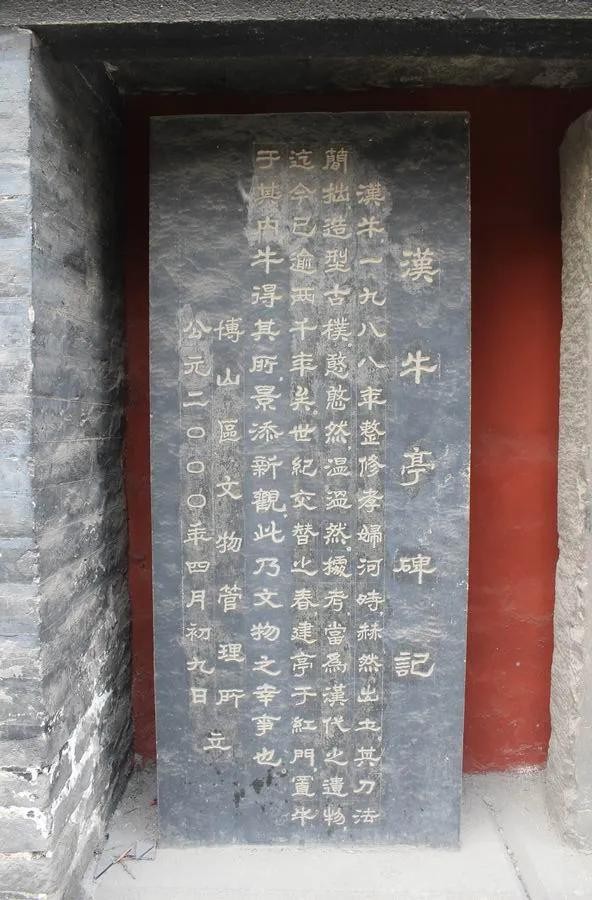 漢牛亭碑記
漢牛一九八八年整修孝婦河時赫然出土其刀法
簡拙造型古樸憨憨然温温然據考當爲漢代之遺物
迄今已逾两千年矣世紀交替之春建亭于紅門置牛
于其内牛得其所景添新觀此乃文物之幸事也
博山區文物管理所立
公元二〇〇〇年四月初九日